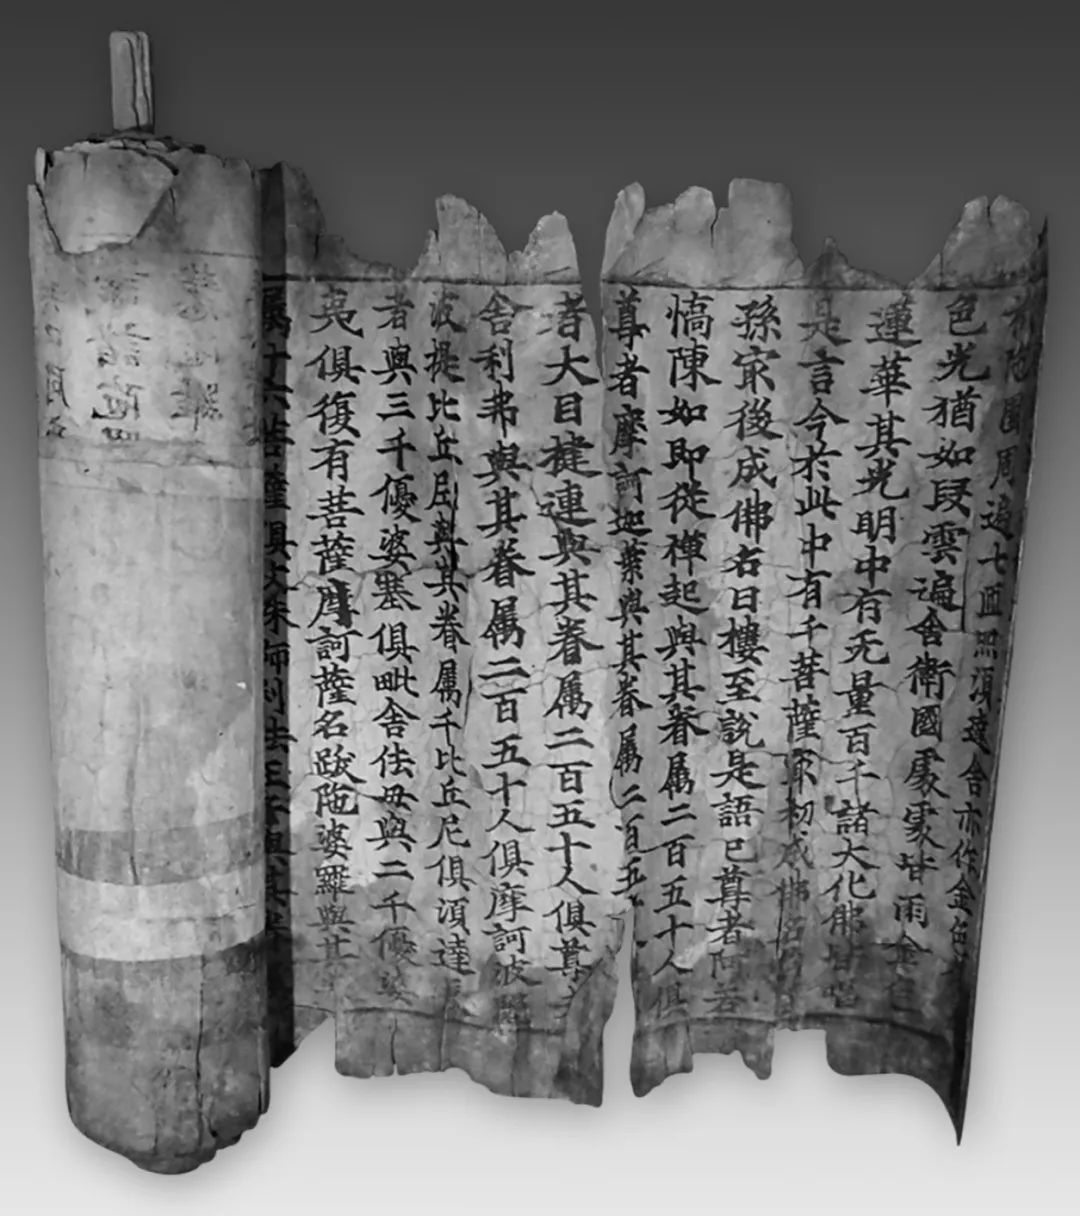 祇陁園周遍七匝照湏達舍亦作金色
色光猶如段雲遍舍衛國處處皆雨金色
蓮華其光明中有无量百千諸大化佛皆唱
是言今於此中有千菩薩冣初成佛名
孫冣後成佛名曰樓至說是語已尊者阿若
憍陳如即從禪起與其眷属二百五十人俱
尊者摩訶迦葉與其眷属二百五
者大目揵連與其眷属二百五十人俱尊
舍利弗與其眷属二百五十人俱摩訶波闍
波提比丘尼與其眷属千比丘尼俱湏達長
者與三千優婆塞俱毗舍佉母與二千優婆
夷俱復有菩薩摩訶薩名跋陁婆羅與其
属十六菩薩俱文殊師利法王子與其